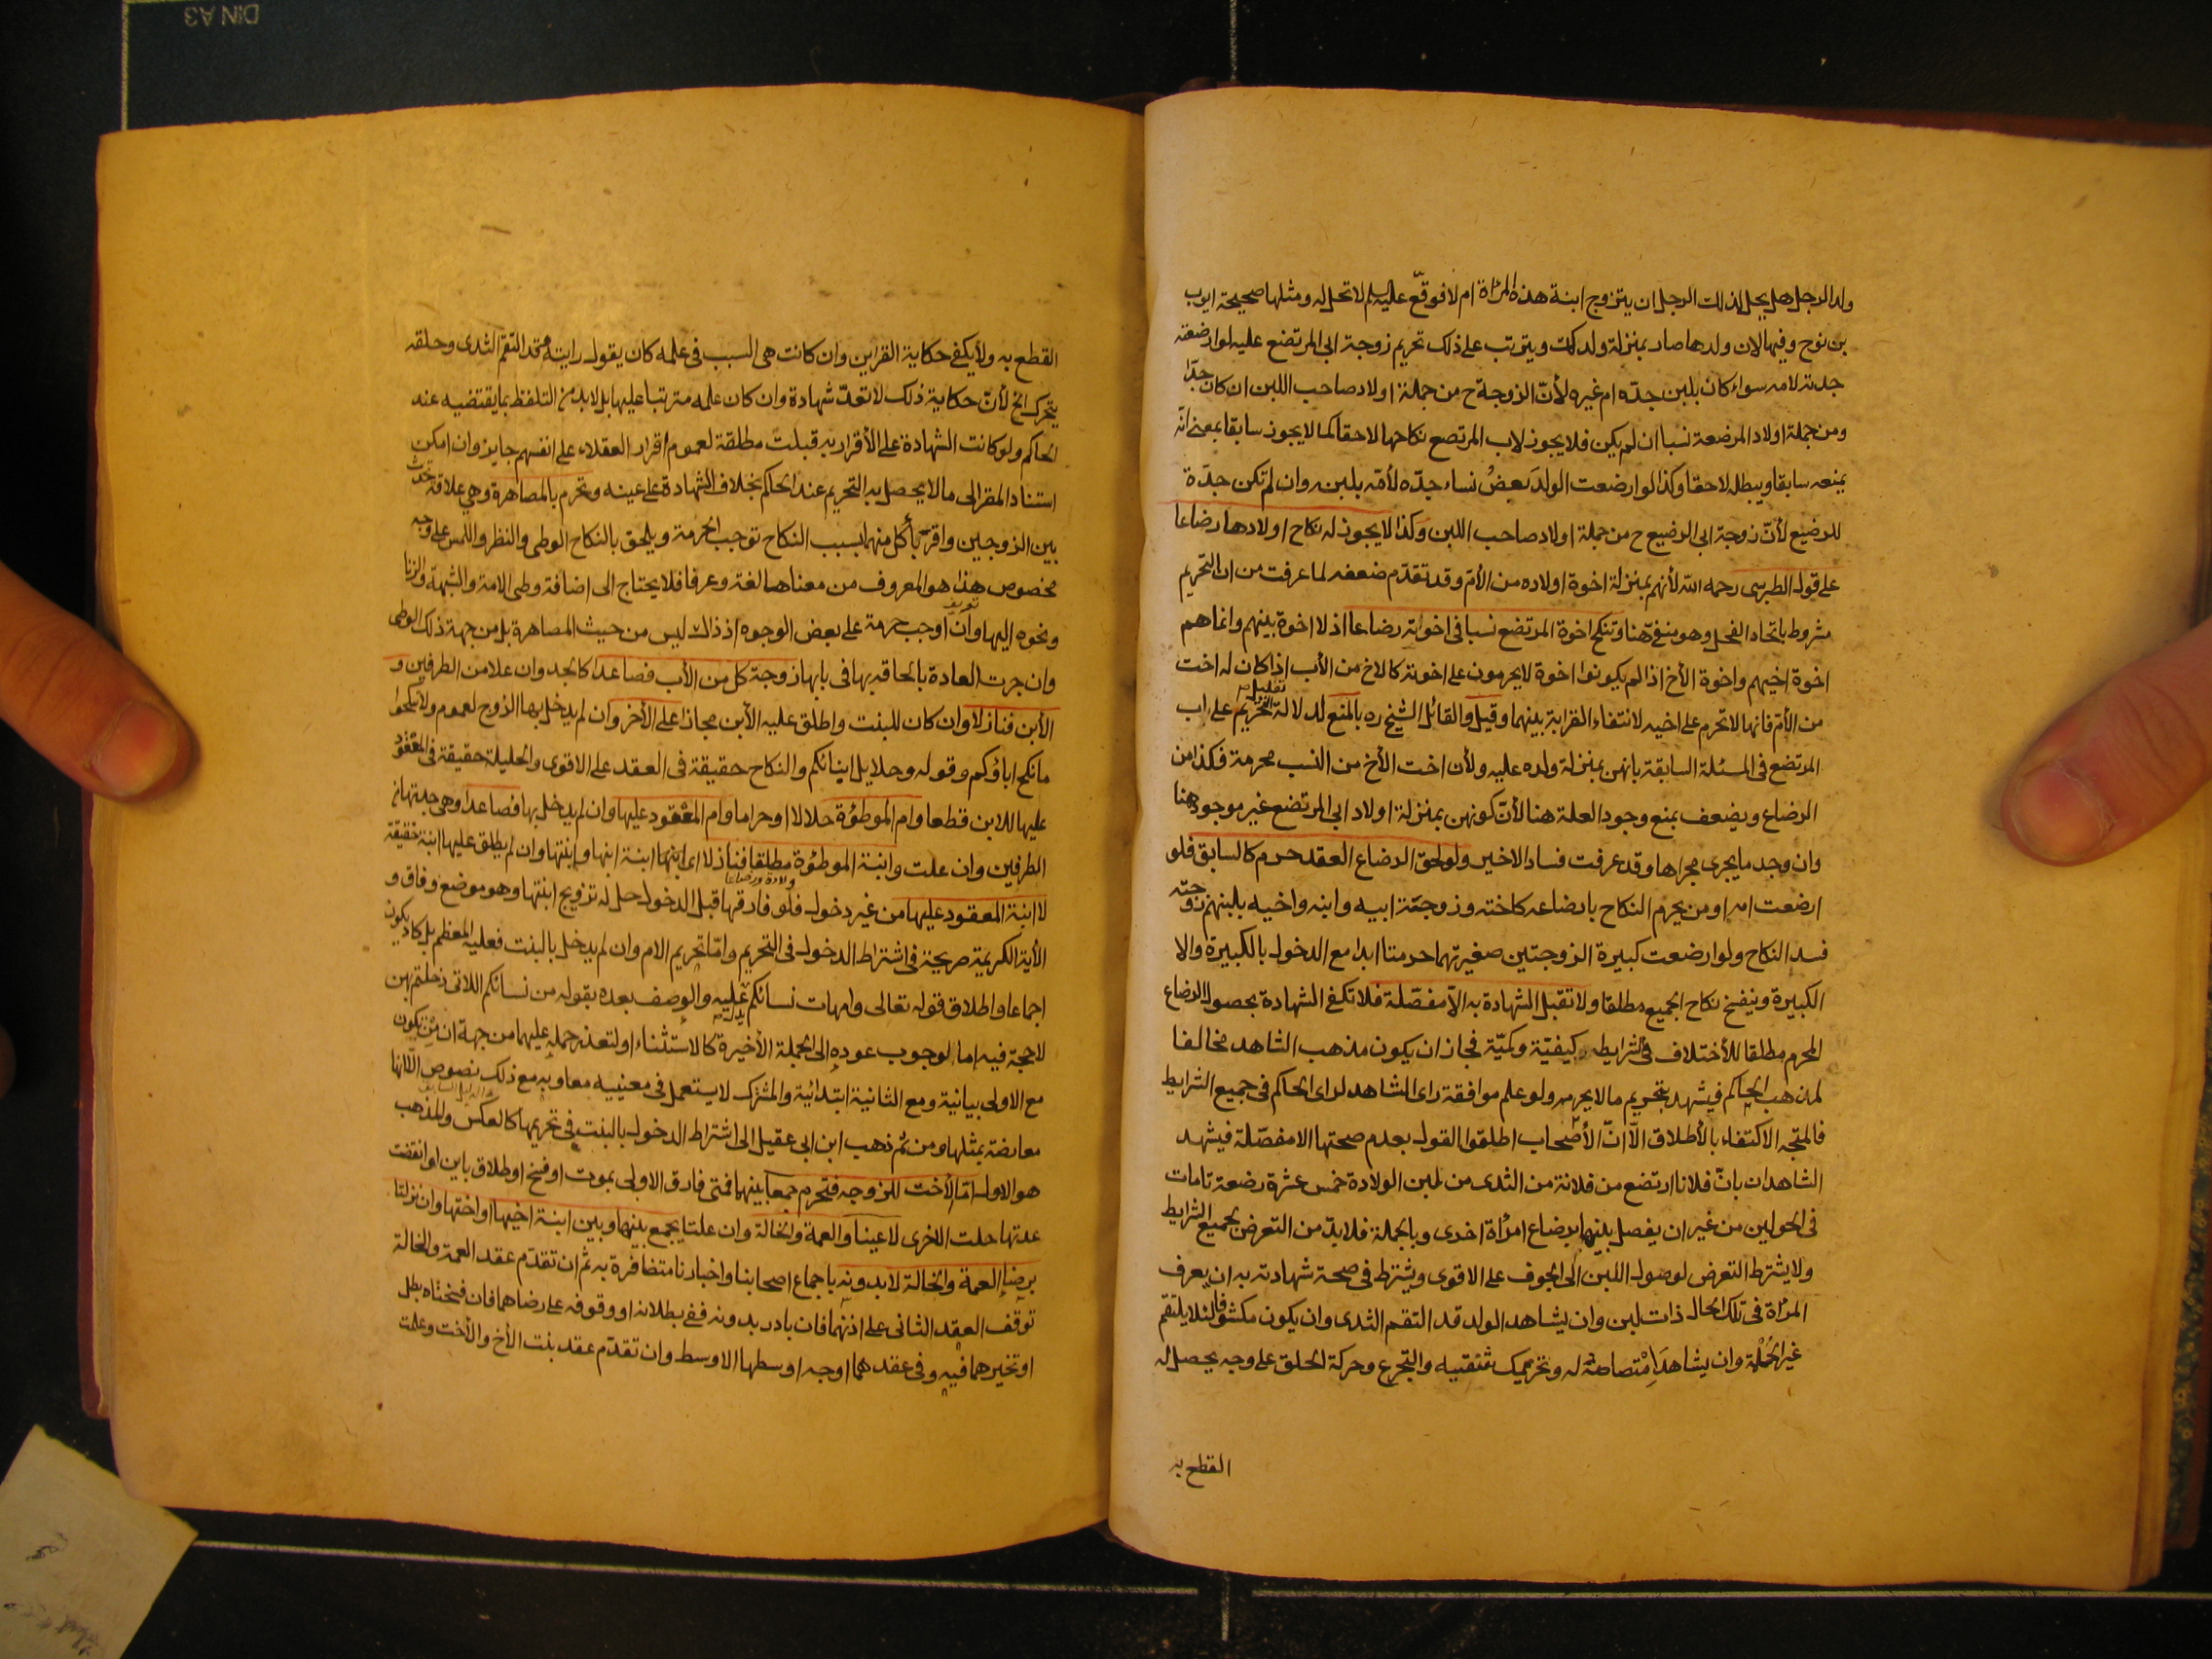 ولد الرجل هل يحل لذلك الرجل ان يتزوج ابنة هذه المرأة ام لا فوقّع عليه السلم لا تحل له ومثلها صحيحة ايوب
بن نوح وفيها لان ولدها صار بمنزلة ولدك ويترتب على ذلك تحريم زوجة ابى المرتضع عليه لو ارضعته
جدته لامه سواء كان بلبن جدّه ام غيره لأنّ الزوجة ح من جملة اولاد صاحب اللبن ان كان جدّا
ومن جملة اولاد المرضعة نسبا ان لم يكن فلا يجوز لاب المرتضع نكاحها لاحقا كما لا يجوز سابقا بمعنى انّه
يمنعه سابقا ويبطله لاحقا وكذا لو ارضعت الولدَ بعضُ نساء جدّه لأمّه بلبنه وان لم تكن جدّة
للرضيع لأنّ زوجة ابى الرضيع ح من جملة اولاد صاحب اللبن وكذا لا يجوز له نكاح اولادها رضاعا
على قول الطبرسى رحمه الله لأنهم بمنزلة اخوة اولاده من الأمّ وقد تقدّم ضعفه لما عرفت من ان التحريم
مشروط باتحاد الفحل وهو منفىّ هنا وتنكح اخوة المرتضع نسبا فى اخوته رضاعا اذ لا اخوة بينهم وانما هم
اخوة اخيهم واخوة الأخ اذا لم يكونوا اخوة لا يحرمون على اخوته كالاخ من الأب اذا كان له اخت
من الأمّ فانها لا تحرم على اخيه لانتفاء القرابة بينهما وقيل والقائل الشيخ ره بالمنع لدلالة تعليل التحريم على اب
المرتضع فى المسئلة السابقة بانهن بمنزلة ولده عليه ولأن اخت الأخ من النسب محرمة فكذا من
الرضاع ويضعف بمنع وجود العلة هنا لأنّ كونهن بمنزلة اولاد ابى المرتضع غير موجود هنا
وان وجد ما يجرى مجراها وقد عرفت فساد الاخير ولو لحق الرضاع العقد حرم كالسابق فلو
ارضعت امه او من يحرم النكاح بارضاعه كاخته وزوجة ابيه وابنه واخيه بلبنهم زوجته
فسد النكاح ولو ارضعت كبيرة الزوجتين صغيرتهما حرمتا ابدا مع الدخول بالكبيرة والا
الكبيرة وينفسخ نكاح الجميع مطلقا ولا تقبل الشهادة به الاّ مفصّلة فلا تكفى الشهادة بحصول الرضاع
المحرم مطلقا للأختلاف فى شرايطه كيفيّة وكميّة فجاز ان يكون مذهب الشاهد مخالفا
لمذهب الحاكم فيشهد بتحريم ما لا يحرمه ولو علم موافقة راى الشاهد لراى الحاكم فى جميع الشرايط
فالمتجه الاكتفاء بالأطلاق الاّ انّ الأصحاب اطلقوا القول بعدم صحتها الا مفصّلة فيشهد
الشاهدان بانّ فلانا ارتضع من فلانة من الثدى من لبن الولادة خمس عشرة رضعة تامات
فى الحولين من غير ان يفصل بينها برضاع امرأة اخرى وبالجملة فلا بدّ من التعرض لجميع الشرايط
ولا يشترط التعرض لوصول اللبن الى الجوف على الاقوى ويشترط فى صحة شهادته به ان يعرف
المرأة فى تلك الحال ذات لبن وان يشاهد الولد قد التقم الثدى وان يكون مكشوفا لئلا يلتقم
غير الحُلْمة وان يشاهدَ امْتصاصَه له وتحريك شفتيه والتجرع وحركة الحلق على وجه يحصل له
القطع به
القطع به ولا يكفى حكاية القراين وان كانت هى السبب فى علمه كان يقول رايته قد التقم الثدى وحلقه
يتحرك الخ لأنّ حكاية ذلك لا تعدّ شهادة وان كان علمه مترتبا عليها بل لابد من التلفظ بما يقتضيه عند
الحاكم ولو كانت الشهادة على الأقرار به قبلت مطلقة لعموم اقرار العقلاء على انفسهم جايز وان امكن
استناد المقر الى ما لا يحصل به التحريم عند الحاكم بخلاف الشهادة على عينه وتحرم بالمصاهرة وهى علاقة تحدث
بين الزوجين واقربآء كل منهما بسبب النكاح توجب الحرمة ويلحق بالنكاح الوطى والنظر واللمس على وجه
مخصوص هذا هو المعروف من معناها لغة وعرفا فلا يحتاج الى اضافة وطى الامة والشبهة والزنا
ونحوه اليها وان اوجب حرمة على بعض الوجوه اذ ذاك ليس من حيث المصاهرة بل من جهة ذلك الوطى
وان جرت العادة بالحاقه بها فى بابها زوجة كل من الأب فصاعدا كالجد وان علا من الطرفين و
الأبن فنازلا وان كان للبنت واطلق عليه الأبن مجازا على الأخر وان لم يدخل بها الزوج لعموم ولا تنكحوا
ما نكح اباؤكم وقوله وحلايل ابنائكم والنكاح حقيقة فى العقد على الاقوى والحليلة حقيقة فى المعقود
عليها للابن قطعا وام الموطؤة حلالا او حراما وام المعقود عليها وان لم يدخل بها فصاعدا وهى جدتها من
الطرفين وان علت وابنة الموطؤة مطلقا فنازلا اى ابنة ابنها وابنتها وان لم يطلق عليها ابنة حقيقة
لا ابنة المعقود عليها من غير دخول فلو فارقها قبل الدخول حل له تزويج ابنتها وهو موضع وفاق و
الأية الكريمة صريحة فى اشتراط الدخول فى التحريم وامّا تحريم الام وان لم يدخل بالبنت فعليه المعظم بل كاد يكون
اجماعا واطلاق قوله تعالى وامهات نسائكم يدل عليه والوصف بعده بقوله من نسائكم اللاتى دخلتم بهن
لا حجة فيه اما لوجوب عوده الى الجملة الأخيرة كالاستثناء او لتعذر حمله عليهما من جهة ان من تكون
مع الاولى بيانية ومع الثانية ابتدائية والمشترك لا يستعمل فى معنييه معا وبه مع ذلك نصوص الا انها
معارضة بمثلها ومن ثم ذهب ابن ابى عقيل الى اشتراط الدخول بالبنت فى تحريمها كالعكس والمذهب
هو الاول امّا الأخت للزوجة فتحرم جمعا بينهما فمتى فارق الاولى بموت او فسخ او طلاق باين او انقضت
عدتها حلت الاخرى لا عينا والعمة والخالة وان علتا يجمع بينهما وبين ابنة اخيها او اختها وان نزلتا
برضاء العمة والخالة لا بدونه باجماع اصحابنا واخبارنا متضافرة به ثم ان تقدّم عقد العمة والخالة
توقف العقد الثانى على اذنهما فان بادر بدونه ففى بطلانه او وقوفه على رضاهما فان فسختاه بطل
او تخيرهما فيه وفى عقدهما اوجه اوسطها الاوسط وان تقدّم عقد بنت الأخ والأخت وعلمت